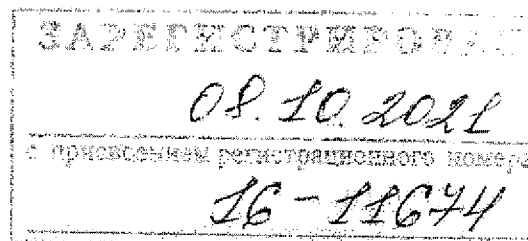 ЗАРЕГИСТРИРОВАН
08.10.2021
с присвоением регистрационного номера
16-11674